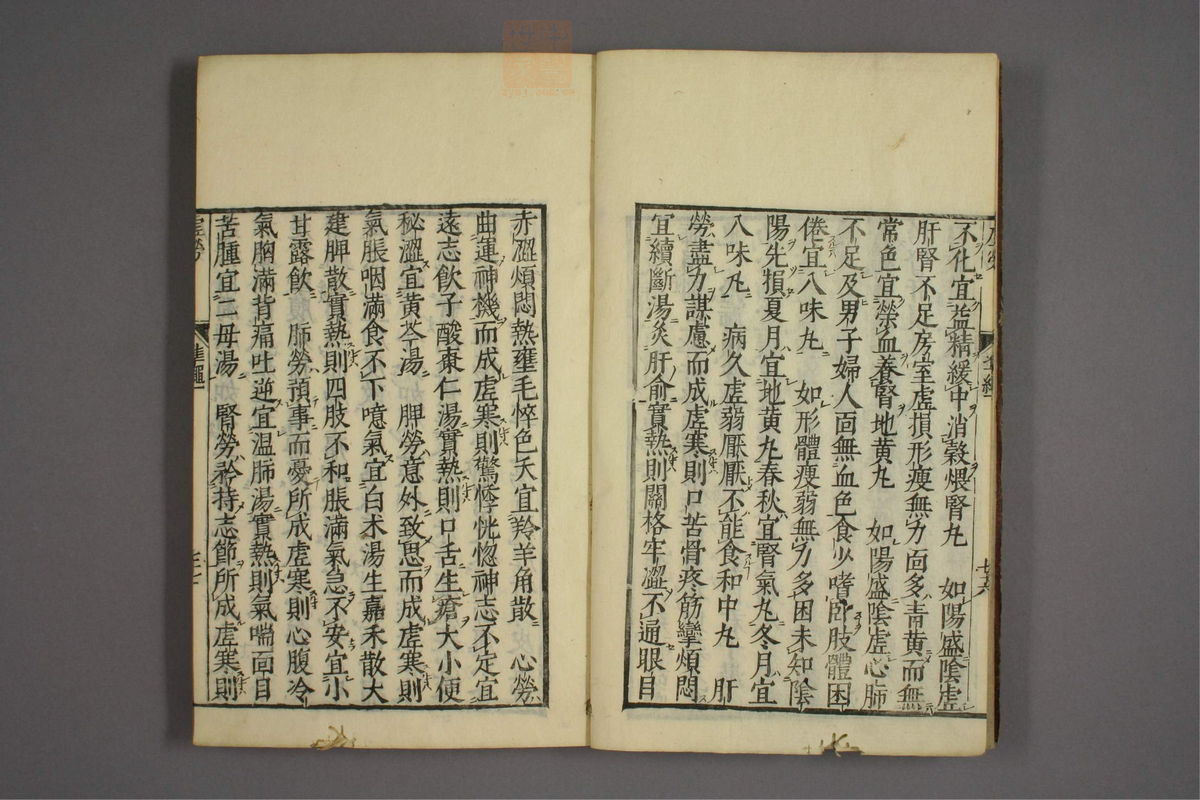 不化宜益精緩中消穀煨腎丸　如陽盛陰虛
肝腎不足房室虛損形瘦無力面多青黄而無
常色宜榮血養腎地黄丸　如陽盛陰虛心肺
不足及男子婦人面無血色食少嗜卧肢體困
倦宜八味丸　如形體瘦弱無力多困未知陰
陽先損夏月宜地黄丸春秋宜腎氣丸冬月宜
八味丸　病久虛弱厭厭不能食和中丸　肝
勞盡力謀慮而成虛寒則口苦骨疼筋攣煩悶
宜續斷湯灸肝俞實熱則關格牢澀不通眼目
赤澀煩悶熱壅毛悴色夭宜羚羊角散　心勞
曲運神機而成虛寒則驚悸恍惚神志不定宜
遠志飲子酸棗仁湯實熱則口舌生瘡大小便
秘澀宜黄芩湯　脾勞意外致思而成虛寒則
氣脹咽滿食不下噫氣宜白术湯生嘉禾散大
建脾散實熱則四肢不和脹滿氣急不安宜小
甘露飲　肺勞預事而憂所成虛寒則心腹冷
氣胸滿背痛吐逆宜温肺湯實熱則氣喘面目
苦腫宜二母湯　腎勞矜持志節所成虛寒則
虛勞　準繩